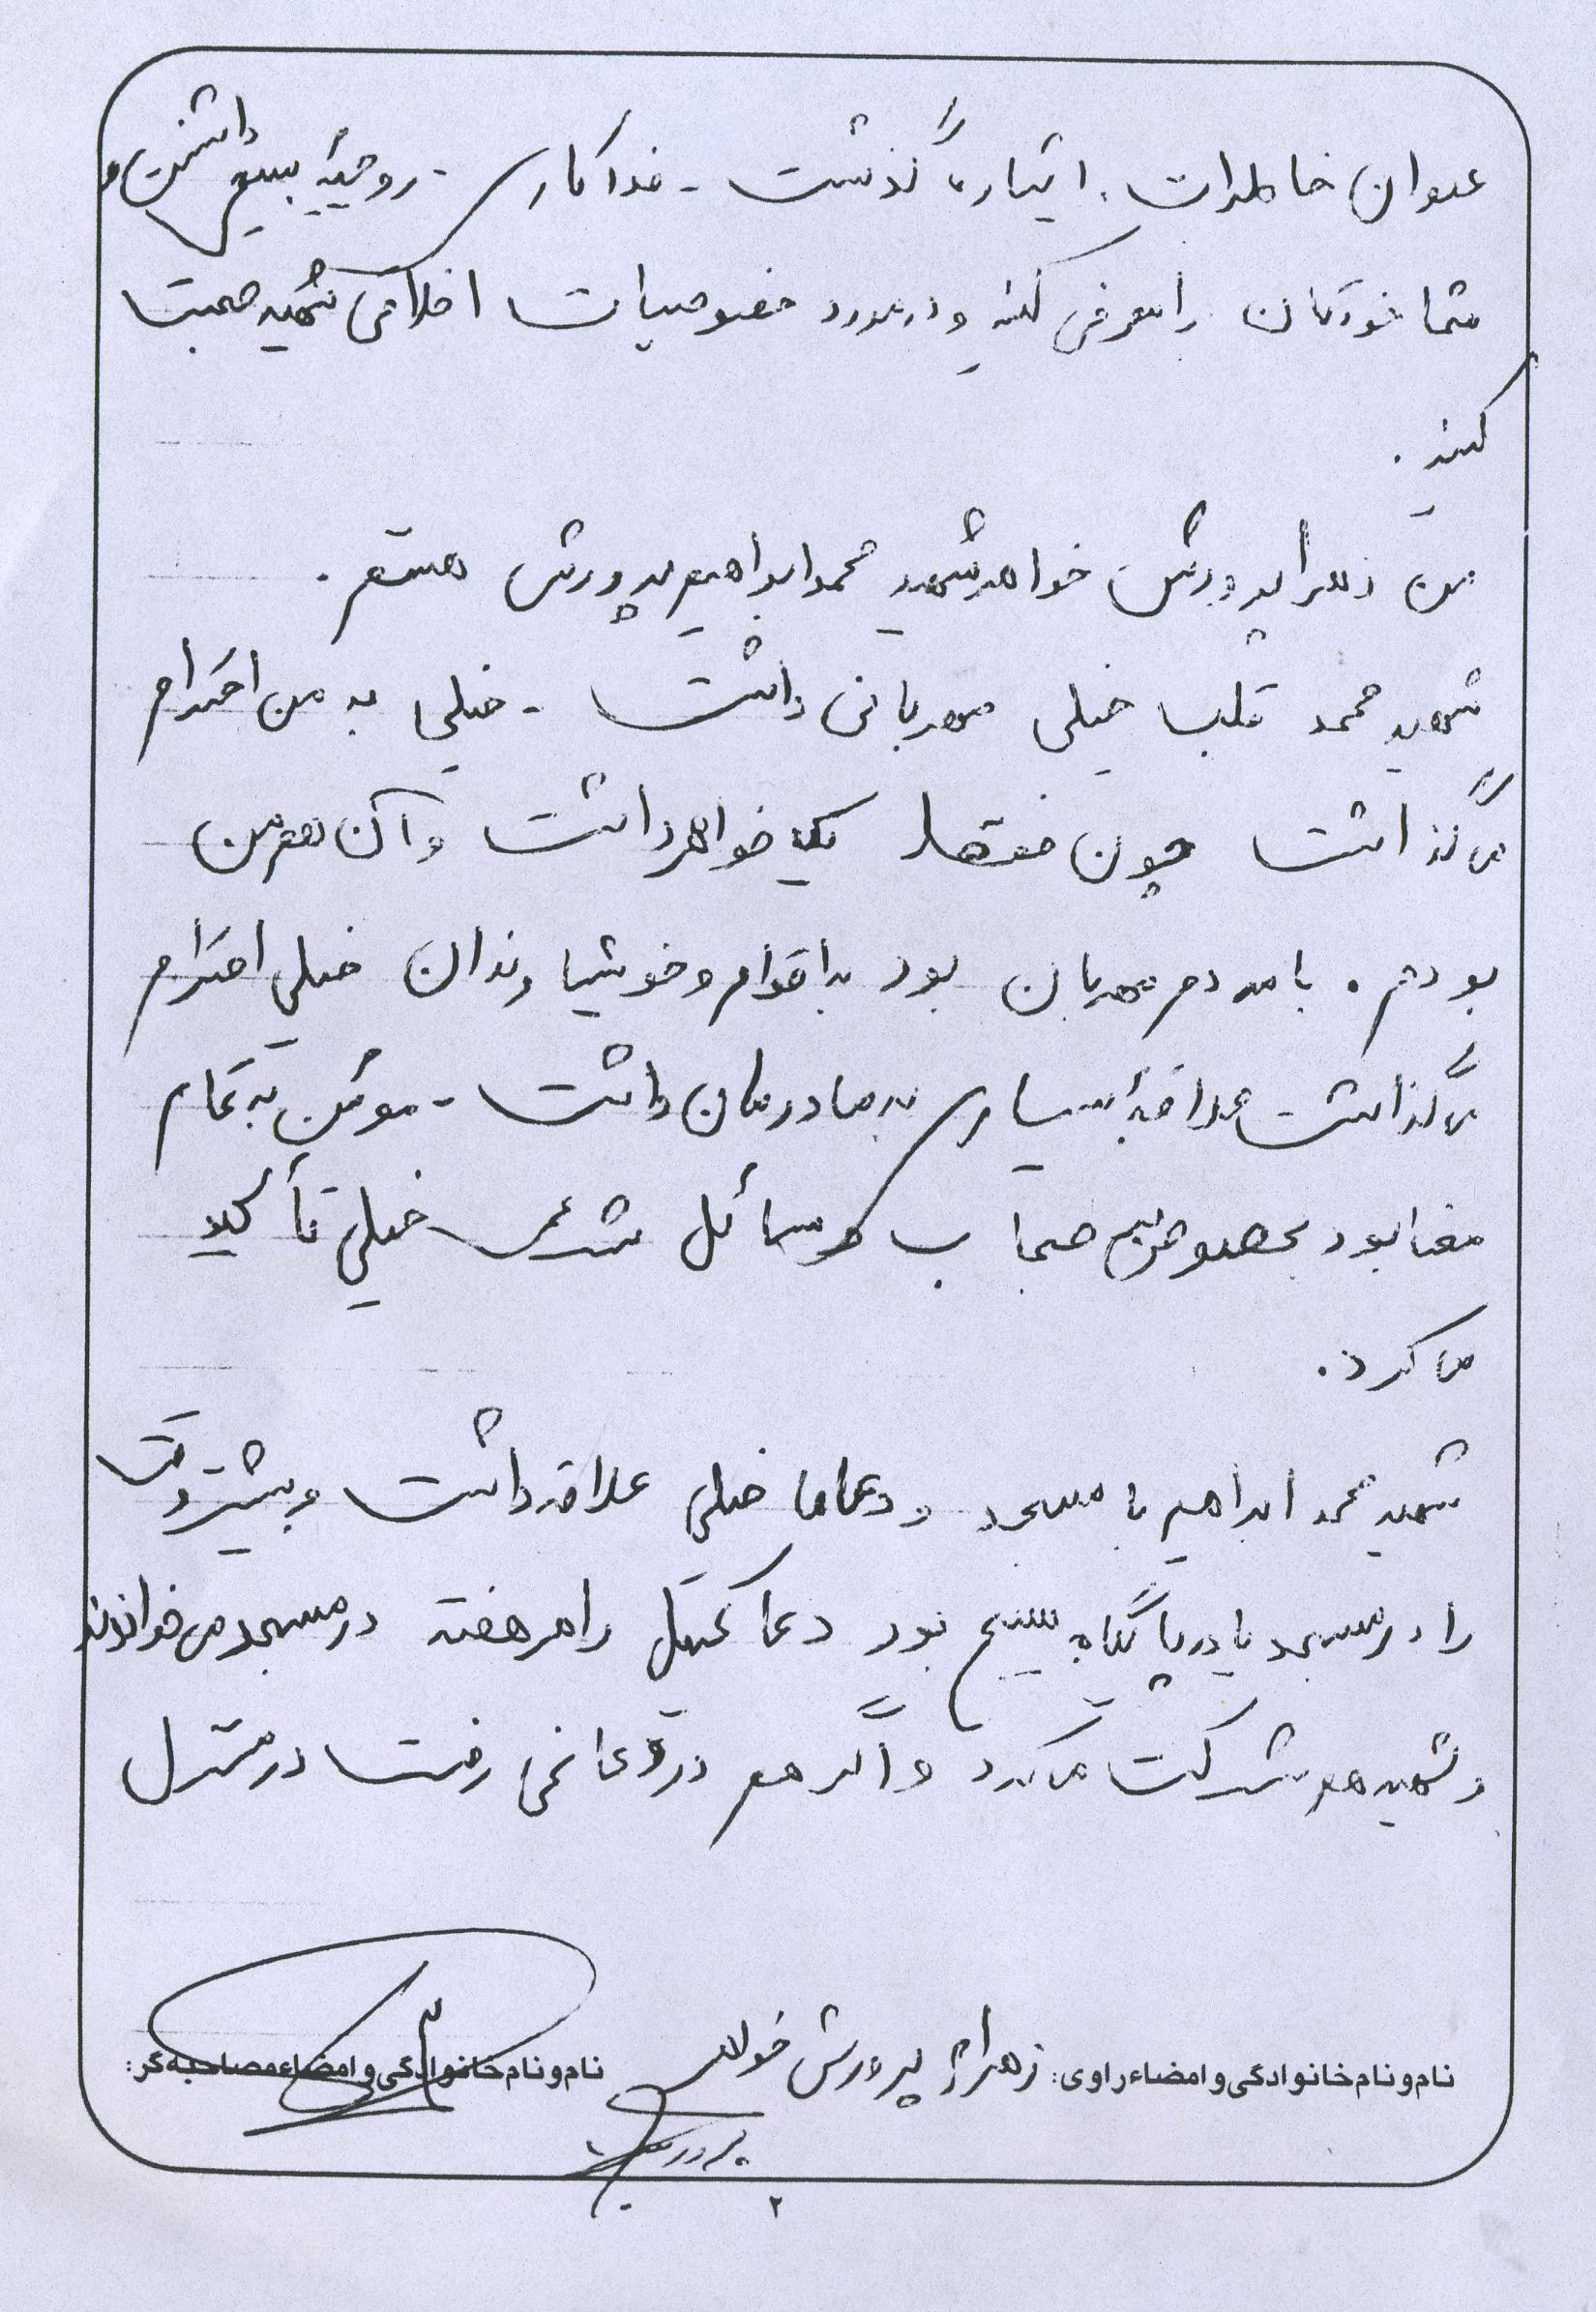 عنوان خاطرات: ایثار، گذشت - فداکاری - روحیه بسیجی داشتن و
شما خودتان را معرفی کنید و در مورد خصوصیات اخلاقی شهید صحبت
کنید.
من زهرا پرورش خواهر شهید محمد ابراهیم پرورش هستم.
شهید محمد قلب خیلی مهربانی داشت - خیلی به من احترام
می گذاشت چون فقط یک خواهر داشت و آن هم من
بودم. با مردم مهربان بود به اقوام و خویشاوندان خیلی احترام
می گذاشت علاقه بسیاری به مادرمان داشت - مؤمن به تمام
معنا بود بخصوص به حجاب و مسائل شرعی خیلی تأکید
می کرد.
شهید محمد ابراهیم با مسجد و دعاها خیلی علاقه داشت و بیشتر وقت
را در مسجد یا در پایگاه بسیج بود دعا کمیل را هر هفته در مسجد می خواندند
و شهید هم شرکت می کرد و اگر هم در دعا نمی رفت در منزل
نام و نام خانوادگی و امضاء راوی: زهرا پرورش نام و نام خانوادگی و امضاء مصاحبه گر:
پرورش
۲